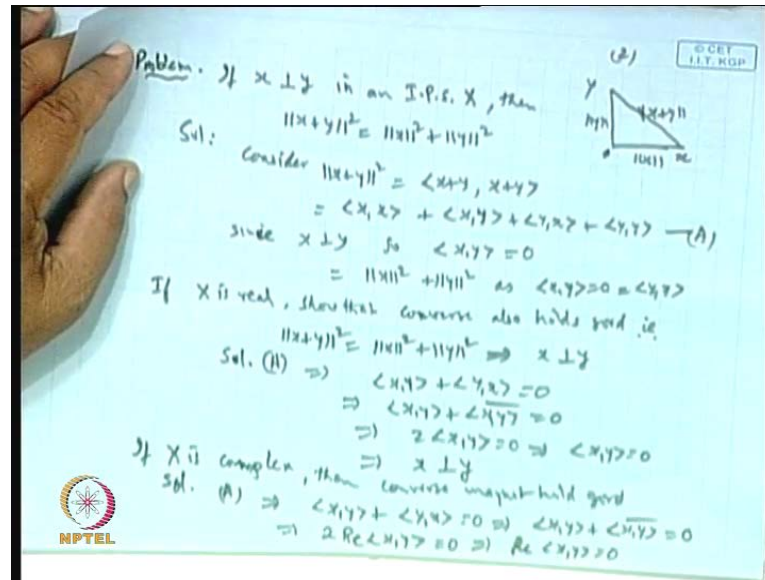 (2)
© CET
I.I.T. KGP
Problem. If x ⊥ y in an I.P.S. X, then
||x+y||² = ||x||² + ||y||²
Y
||y||
||x+y||
||x|| x
Sol: Consider ||x+y||² = <x+y, x+y>
= <x,x> + <x,y> + <y,x> + <y,y> —(A)
since x ⊥ y so <x,y> = 0
= ||x||² + ||y||² as <x,y> = 0 = <y,x>
If X is real, show that converse also holds good ie
||x+y||² = ||x||² + ||y||² ⇒ x ⊥ y
Sol. (A) ⇒ <x,y> + <y,x> = 0
⇒ <x,y> + <x̅,̅y̅> = 0
⇒ 2 <x,y> = 0 ⇒ <x,y> = 0
⇒ x ⊥ y
If X is complex, then converse may not hold good
Sol. (A) ⇒ <x,y> + <y,x> = 0 ⇒ <x,y> + <x̅,̅y̅> = 0
⇒ 2 Re <x,y> = 0 ⇒ Re <x,y> = 0
NPTEL